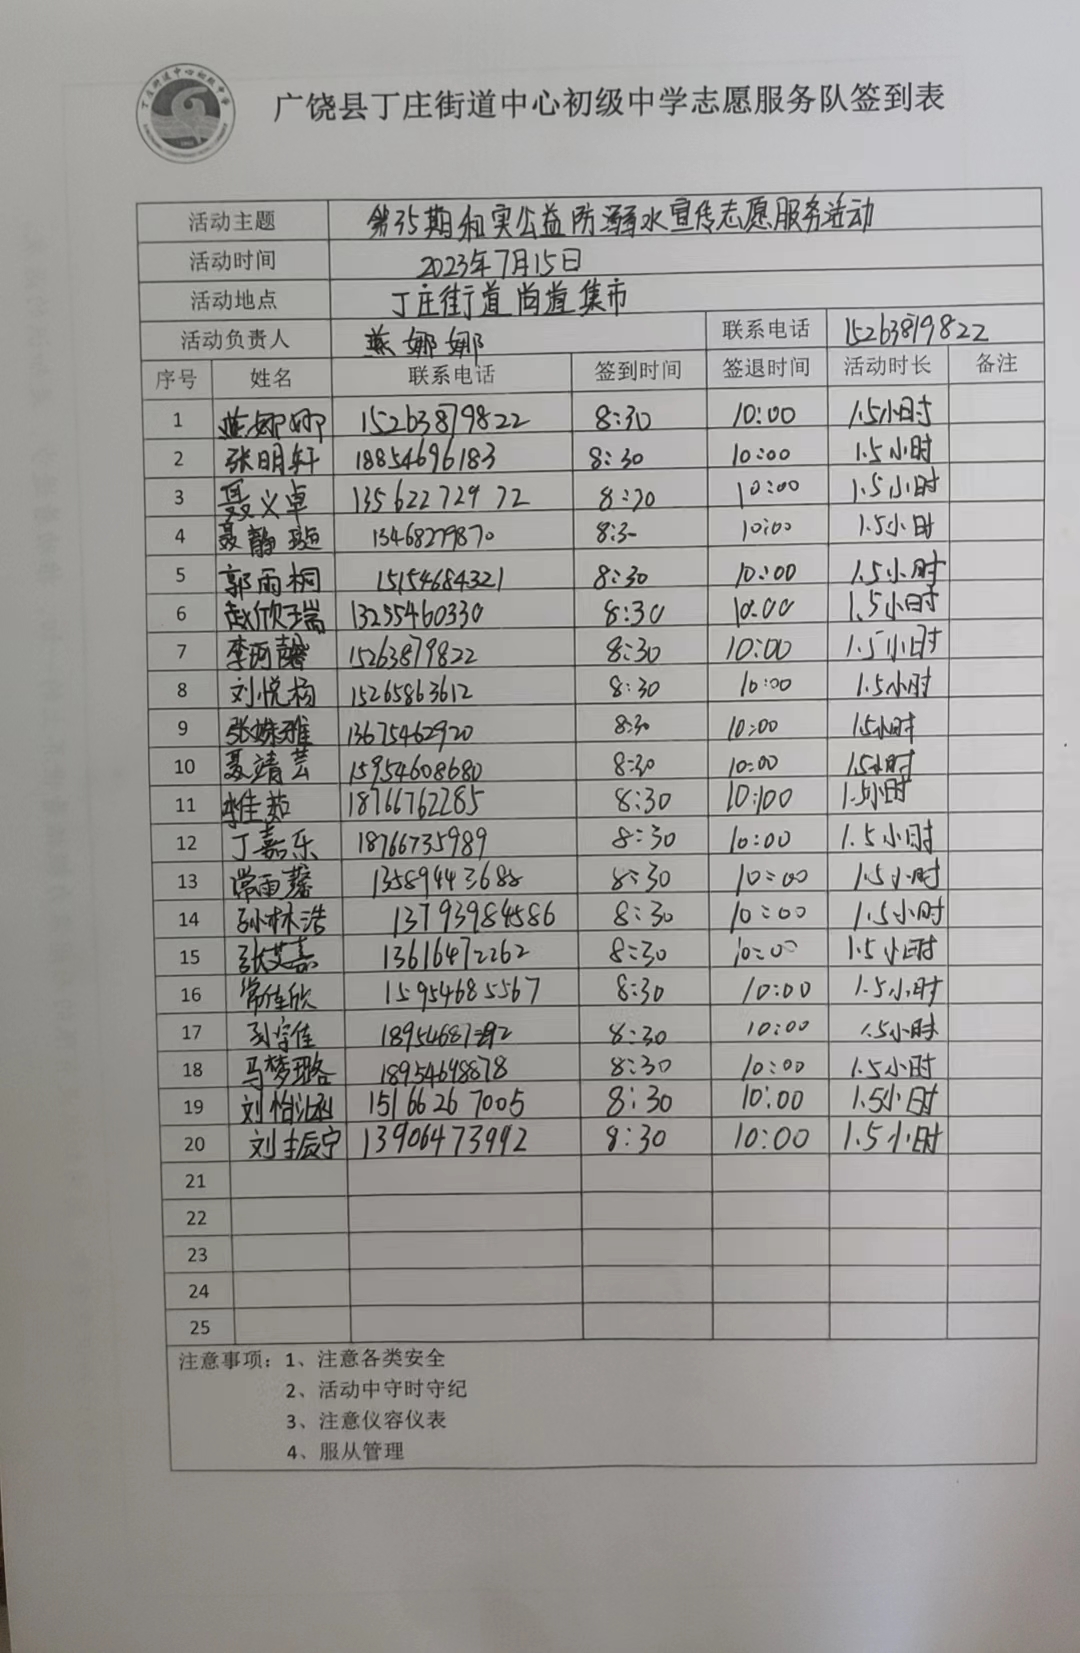 广饶县丁庄街道中心初级中学志愿服务队签到表
活动主题 第35期和实公益防溺水宣传志愿服务活动
活动时间 2023年7月15日
活动地点 丁庄街道尚道集市
活动负责人 燕娜娜 联系电话 15263879822
序号 姓名 联系电话 签到时间 签退时间 活动时长 备注
1 燕娜娜 15263879822 8:30 10:00 1.5小时
2 张明轩 18854696183 8:30 10:00 1.5小时
3 聂义卓 13562272972 8:30 10:00 1.5小时
4 聂静 13468279870 8:30 10:00 1.5小时
5 郭雨桐 15154684321 8:30 10:00 1.5小时
6 赵欣瑞 13255460330 8:30 10:00 1.5小时
7 李雨馨 15263879822 8:30 10:00 1.5小时
8 刘悦杨 15265863612 8:30 10:00 1.5小时
9 张姝雅 13675462920 8:30 10:00 1.5小时
10 聂靖芸 15954608680 8:30 10:00 1.5小时
11 李佳茹 18766762285 8:30 10:00 1.5小时
12 丁嘉乐 18766735989 8:30 10:00 1.5小时
13 常雨馨 13589443688 8:30 10:00 1.5小时
14 孙林浩 13793984586 8:30 10:00 1.5小时
15 张艾嘉 13616472262 8:30 10:00 1.5小时
16 常佳欣 15954685567 8:30 10:00 1.5小时
17 刘宇佳 8:30 10:00 1.5小时
18 马梦璐 18954698878 8:30 10:00 1.5小时
19 刘怡 15166267005 8:30 10:00 1.5小时
20 刘振宁 13906473992 8:30 10:00 1.5小时
21
22
23
24
25
注意事项：1、注意各类安全
2、活动中守时守纪
3、注意仪容仪表
4、服从管理